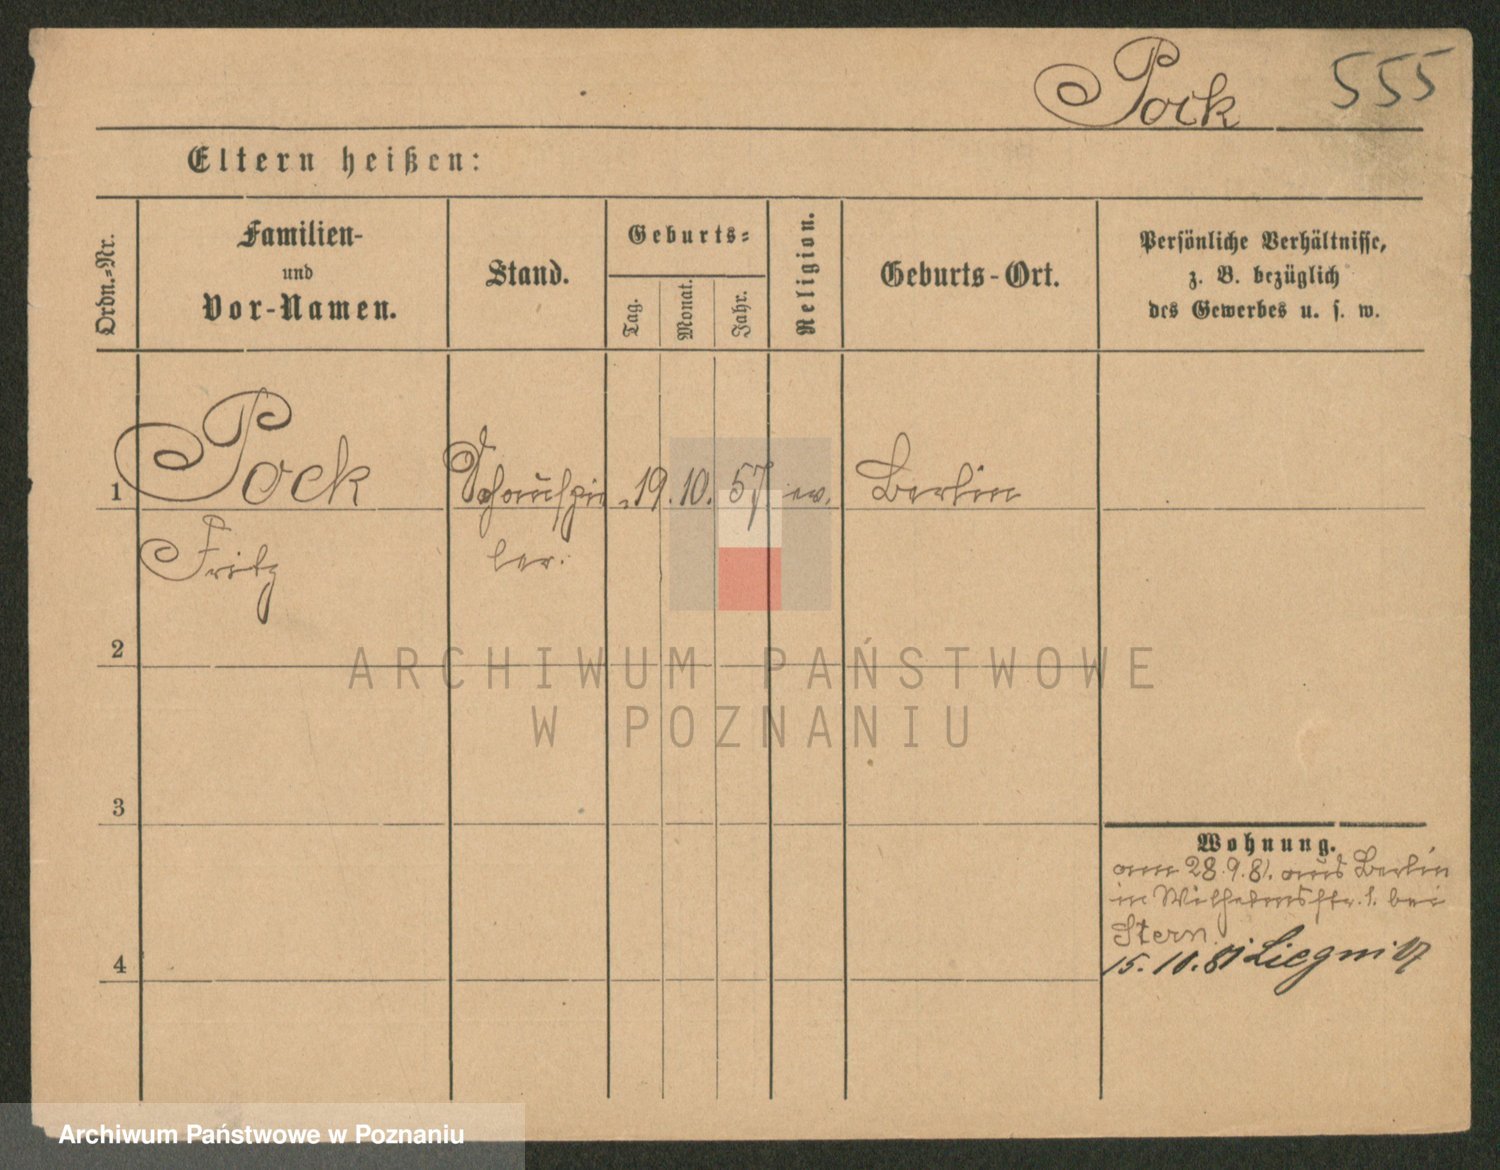 Pock 555
Eltern heißen:
Ordn.-Nr.
Familien-
und
Vor-Namen.
Stand.
Geburts-
Tag.
Monat.
Jahr.
Religion.
Geburts-Ort.
Persönliche Verhältnisse,
z. B. bezüglich
des Gewerbes u. s. w.
1 Pock Schauspie- 19. 10. 57 ev. Berlin
Fritz ler.
2
3
4
Wohnung.
am 28.9.81. aus Berlin
in Wilhelmsstr. 1. bei
Stern.
15.10.81 Liegnitz
ARCHIWUM PAŃSTWOWE
W POZNANIU
Archiwum Państwowe w Poznaniu